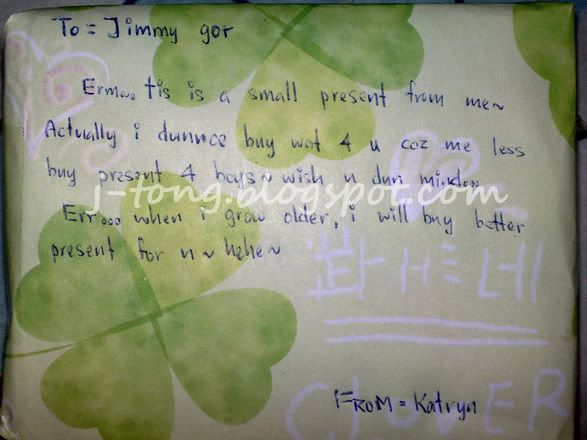 To = Jimmy gor
Erm... tis is a small present from me~
Actually i dunnoe buy wat 4 u coz me less
buy present 4 boys~ wish u dun mind...
j-tong.blogspot.com
Err... when i grow older, i will buy better
present for u~ hehe~
CLOVER
FROM = Katryn